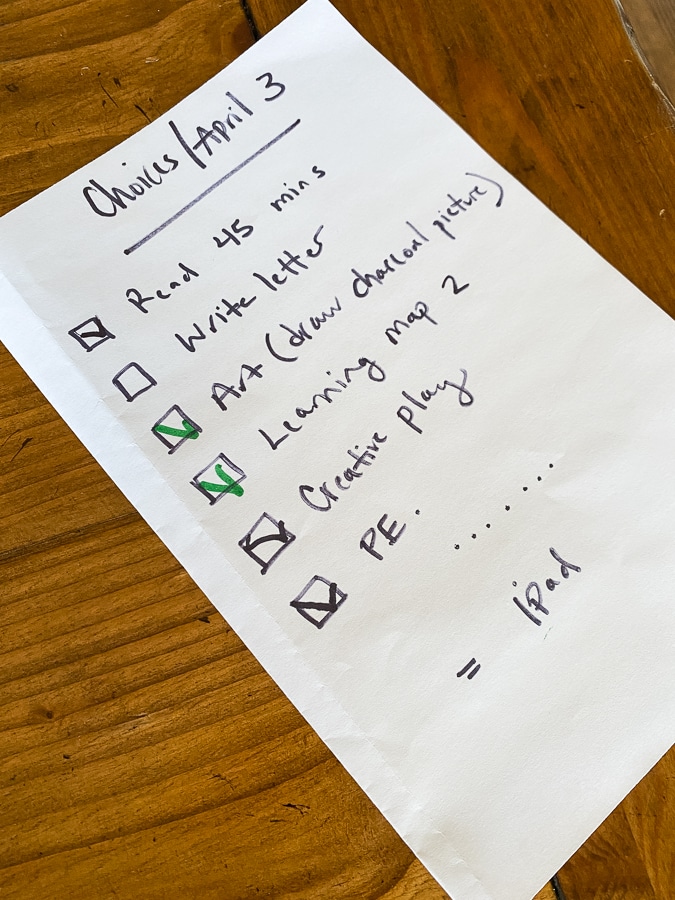 Choices/April 3
Read 45 mins
Write letter
Art (draw charcoal picture)
Learning map 2
Creative play
PE. ........
= iPad